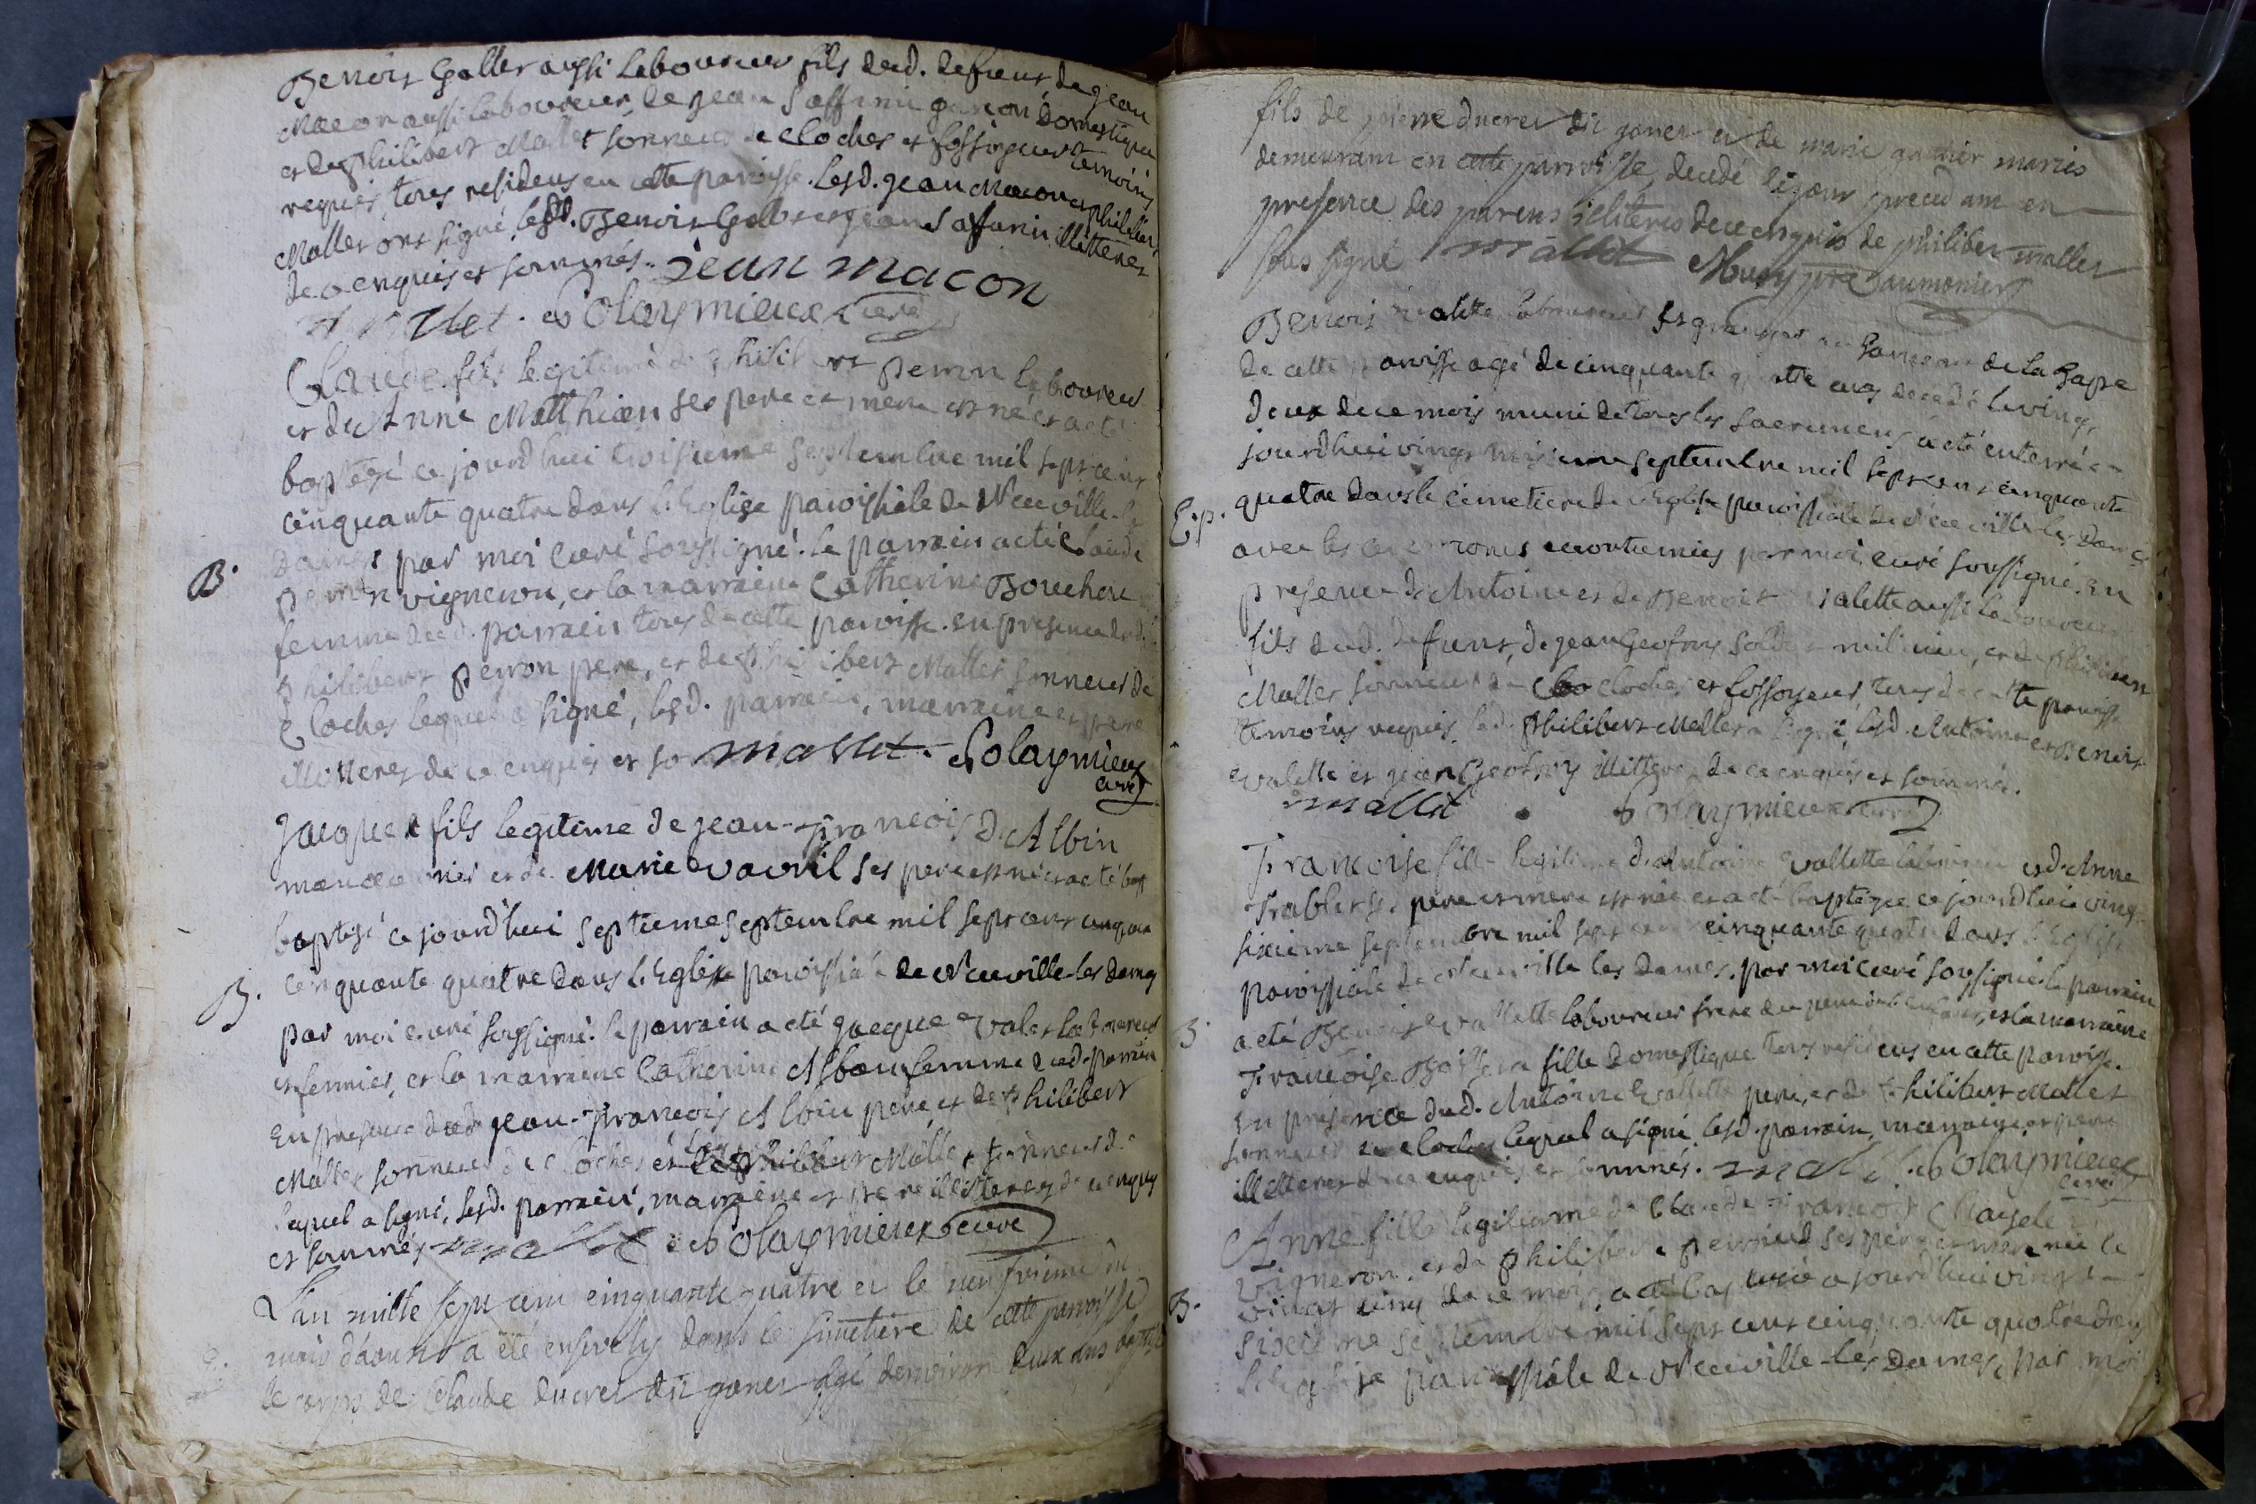 Benoit Gallet aussi laboureur fils dud. defunt, de jean
Macon aussi laboureur, de jean Saffanin garçon domestique
et de philibert Mallet sonneur de cloches et fossoyeur temoins
requis, tous residens en cette paroisse. lesd. jean Macon et philibert
Mallet ont signé, lesd. Benoit Gallet et jean Saffanin illitterés
de ce enquis et sommés. jean macon
mallet. Colaymieux curé
Claude fils legitime de philibert perron laboureur
et de Anne Matthieu ses pere et mere est né et a eté
baptisé ce jourdhui troisieme septembre mil sept cens
cinquante quatre dans l'Eglise paroissiale de Neuville-les
B. Dames par moi curé soussigné. le parrain a eté Claude
perron vigneron, et la marraine Catherine Bouchou
femme dud. parrain tous de cette paroisse. en presence dud.
philibert perron pere, et de philibert Mallet sonneur de
cloches lequel a signé, lesd. parrain, marraine et pere
illitterés de ce enquis et so mallet. Colaymieux
curé
Jacques fils legitime de jean-François D'Albin
et de Marie vavril ses pere est né et a eté bapt
baptisé ce jourd'hui septieme septembre mil sept cens cinquan
B. cinquante quatre dans l'Eglise paroissiale de Neuville-les dames
par moi curé soussigné. le parrain a eté jacque valet laboureur
et fermier, et la marraine Catherine Alban femme dud. parrain
en presence dud. jean-François Albin pere et de philibert
Mallet sonneur de cloches et de philibert Mallet sonneur de
lequel a signé, lesd. parrain, marraine et pere illitterés de ce enquis
et sommés mallet Colaymieux curé
L'an mille sept cent cinquante quatre et le
mois d'aoust a eté ensevely dans le simetiere de cette parroisse
le corps de Claude ducret dit ganet agé d'environ deux ans
fils de pierre ducret dit ganet et de marie gautier mariés
demeurant en cette parroisse, decedé le jour precedant en
presence des parens illiterés de ce enquis de philiber mallet
sous signé mallet Mury pre aumonier
Benoit valette laboureur et granger au hameau de la Gape
de cette paroisse agé de cinquante quatre ans decedé le vingt
deux de ce mois muni de tous les sacremens a eté enterré ce
jourdhui vingt troisieme septembre mil sept cens cinquante
E.p. quatre dans le cimetiere de l'Eglise paroissiale de Neuville les Dames
avec les ceremonies accoutumées par moi curé soussigné. en
presence de Antoine et de Benoit valette aussi laboureurs
fils dud. defunt, de jean Geofroy soldat milicien, et de philibert
Mallet sonneur de cloches et fossoyeur, tous de cette paroisse
temoins requis, led. philibert Mallet a signé, lesd. Antoine et Benoit
valette et jean Geofroy illitterés de ce enquis et sommés.
mallet Colaymieux curé
Françoise fille legitime de Antoine vallette laboureur et de Anne
Trablet ses pere et mere est née et a eté baptisée ce jourdhui vingt
sixieme septembre mil sept cens cinquante quatre dans l'Eglise
paroissiale de Neuville les dames. par moi curé soussigné. le parrain
B. a eté Benoit vallette laboureur frere du pere de l'enfant, et la marraine
Françoise fille domestique tous residens en cette paroisse.
en presence dud. Antoine vallette pere, et de philibert Mallet
sonneur de cloches lequel a signé, lesd. parrain, marraine et pere
illitterés de ce enquis et sommés. mallet. Colaymieux
curé
Anne fille legitime de Claude-François Chapele
vigneron. et de philiberte perraud ses pere et mere née le
B. vingt cinq de ce mois, a eté baptisée ce jourd'hui vingt
sixieme septembre mil sept cens cinquante quatre dans
l'Eglise paroissiale de Neuville-les Dames, par moi